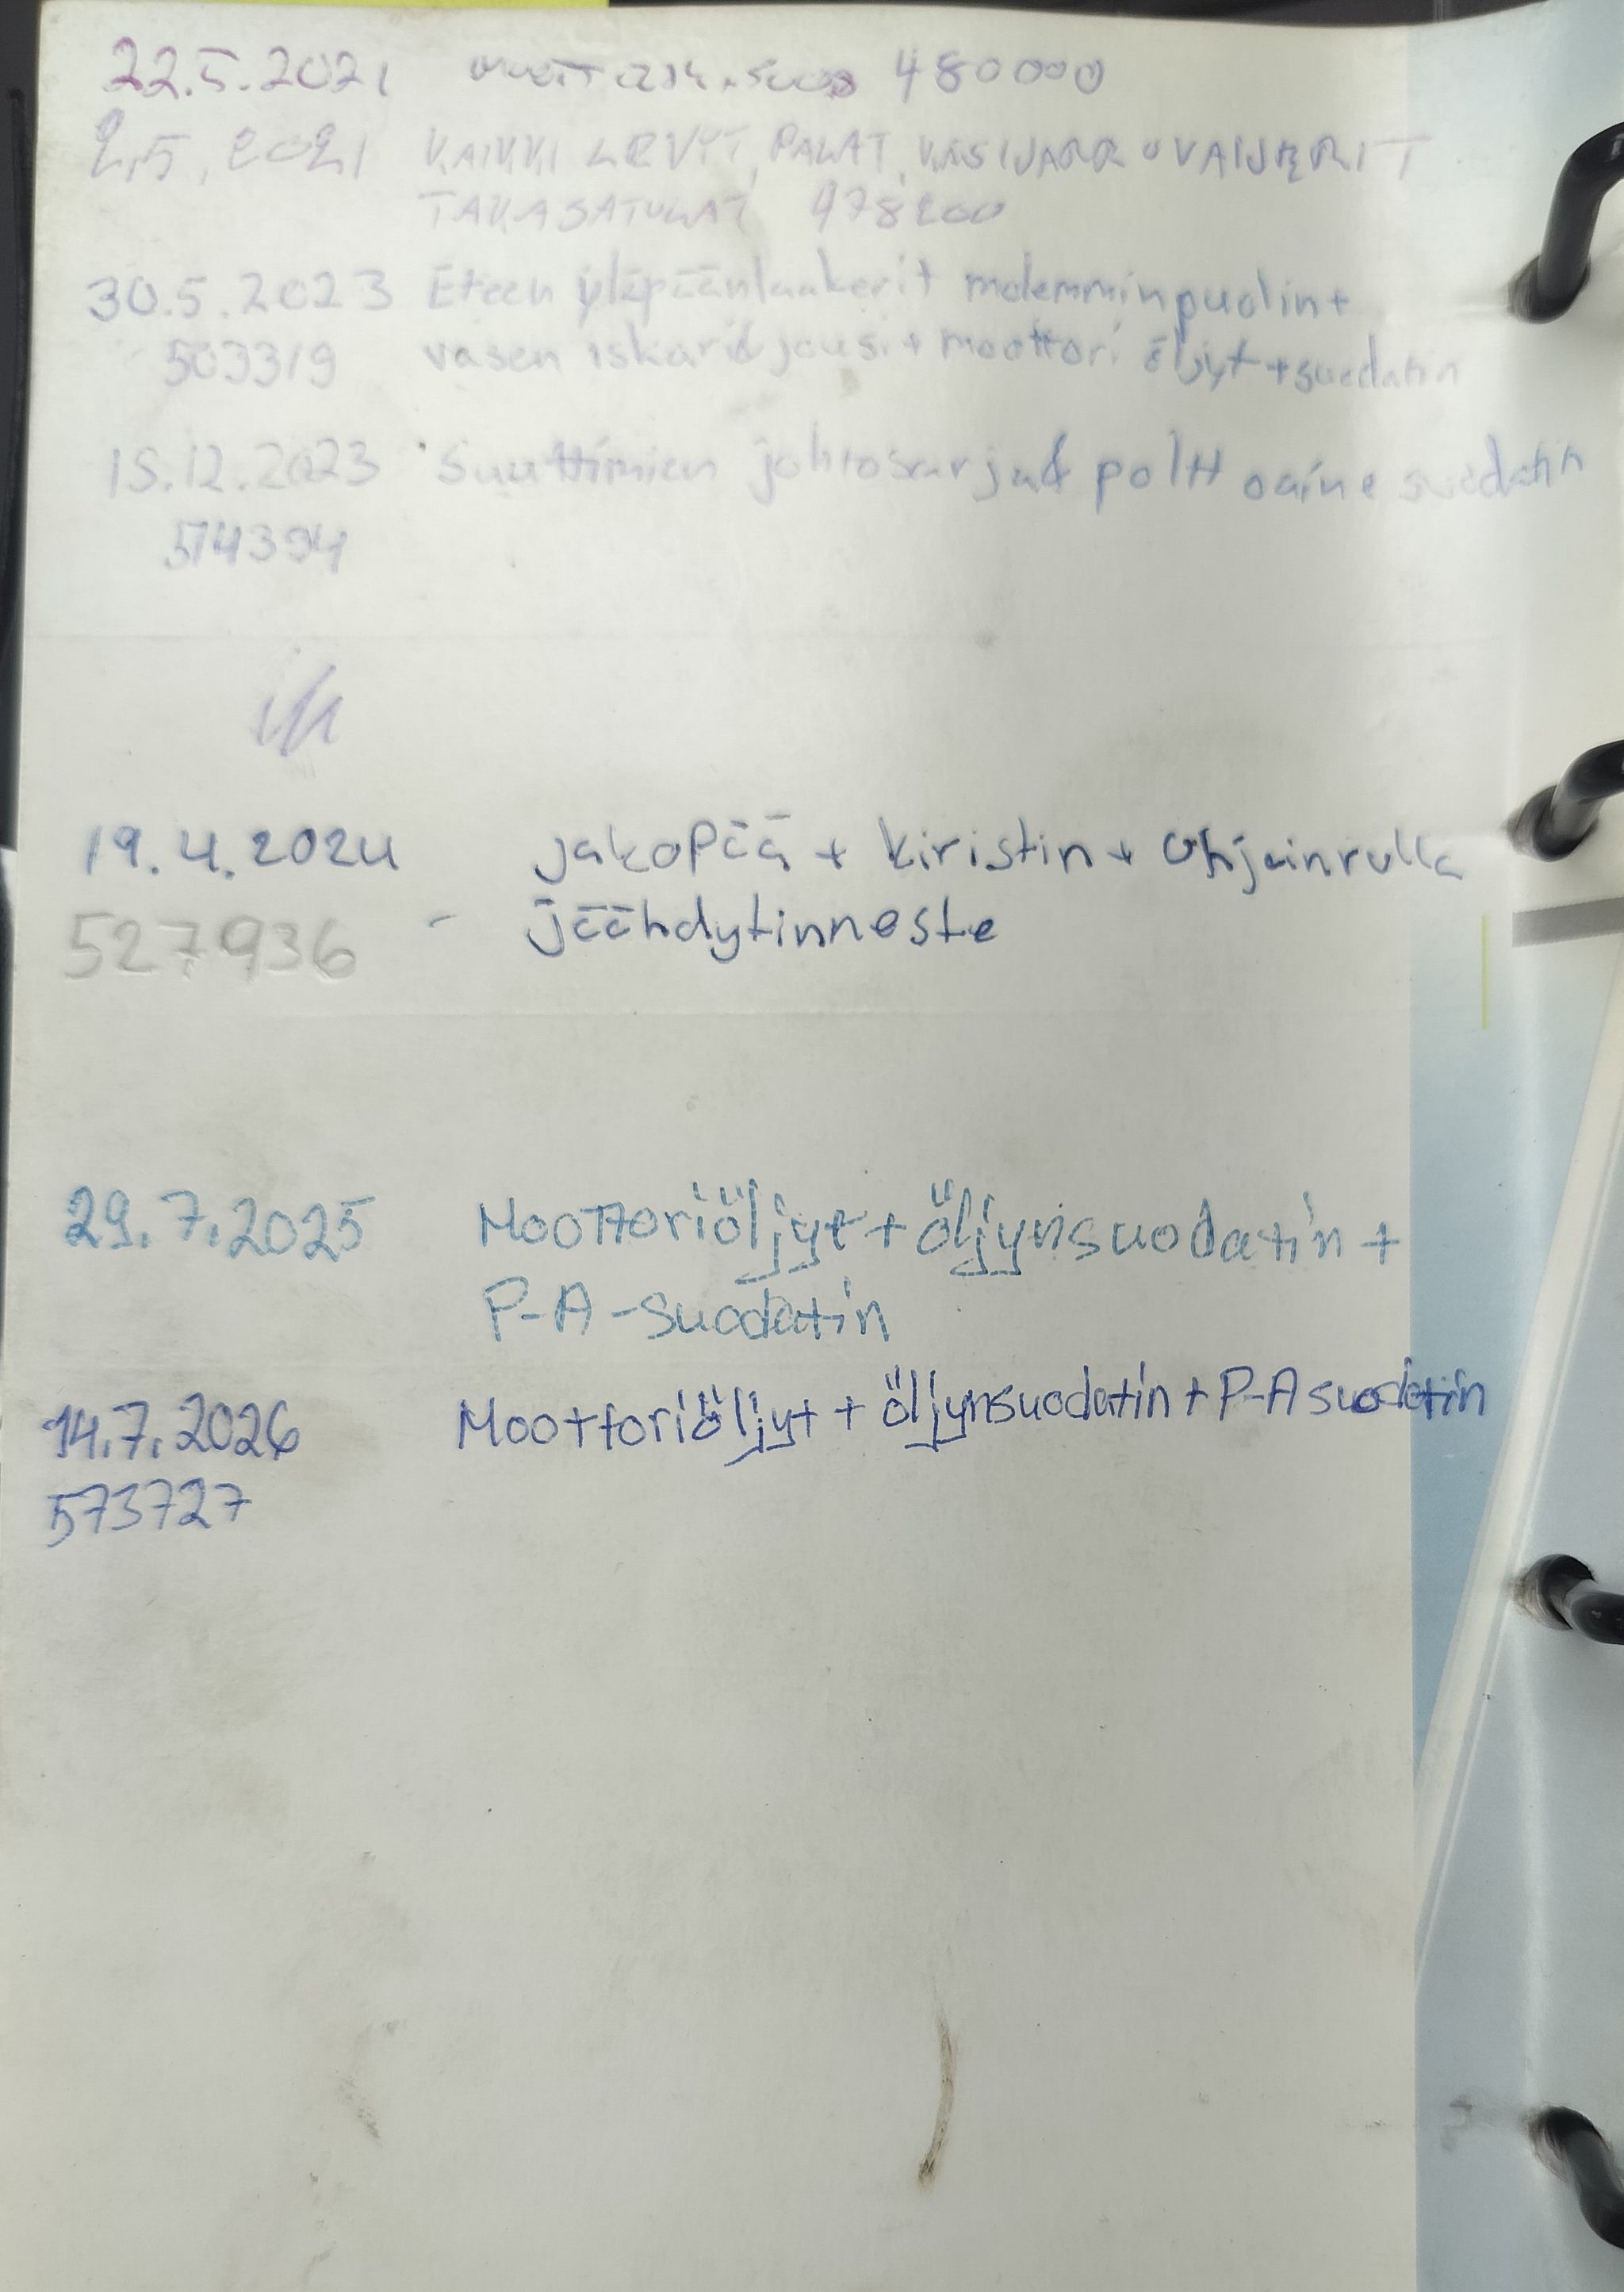 22.5.2021 480000
2.5.2021 KAIKKI LEVYT, PALAT, KÄSIJARRUVAIJERIT
TAKASATULAT 478200
30.5.2023 Eteen yläpäänlaakerit molemminpuolin+
503319 vasen iskari & jousi + moottori öljyt + suodatin
15.12.2023 Suuttimien johtosarja & poltt oaine suodatin
514394
19.4.2024 jakopää + kiristin + ohjainrulla
527936 - jäähdytinneste
29.7.2025 Moottoriöljyt + öljynsuodatin +
P-A-suodatin
14.7.2026 Moottoriöljyt + öljynsuodatin + P-A suodatin
573727